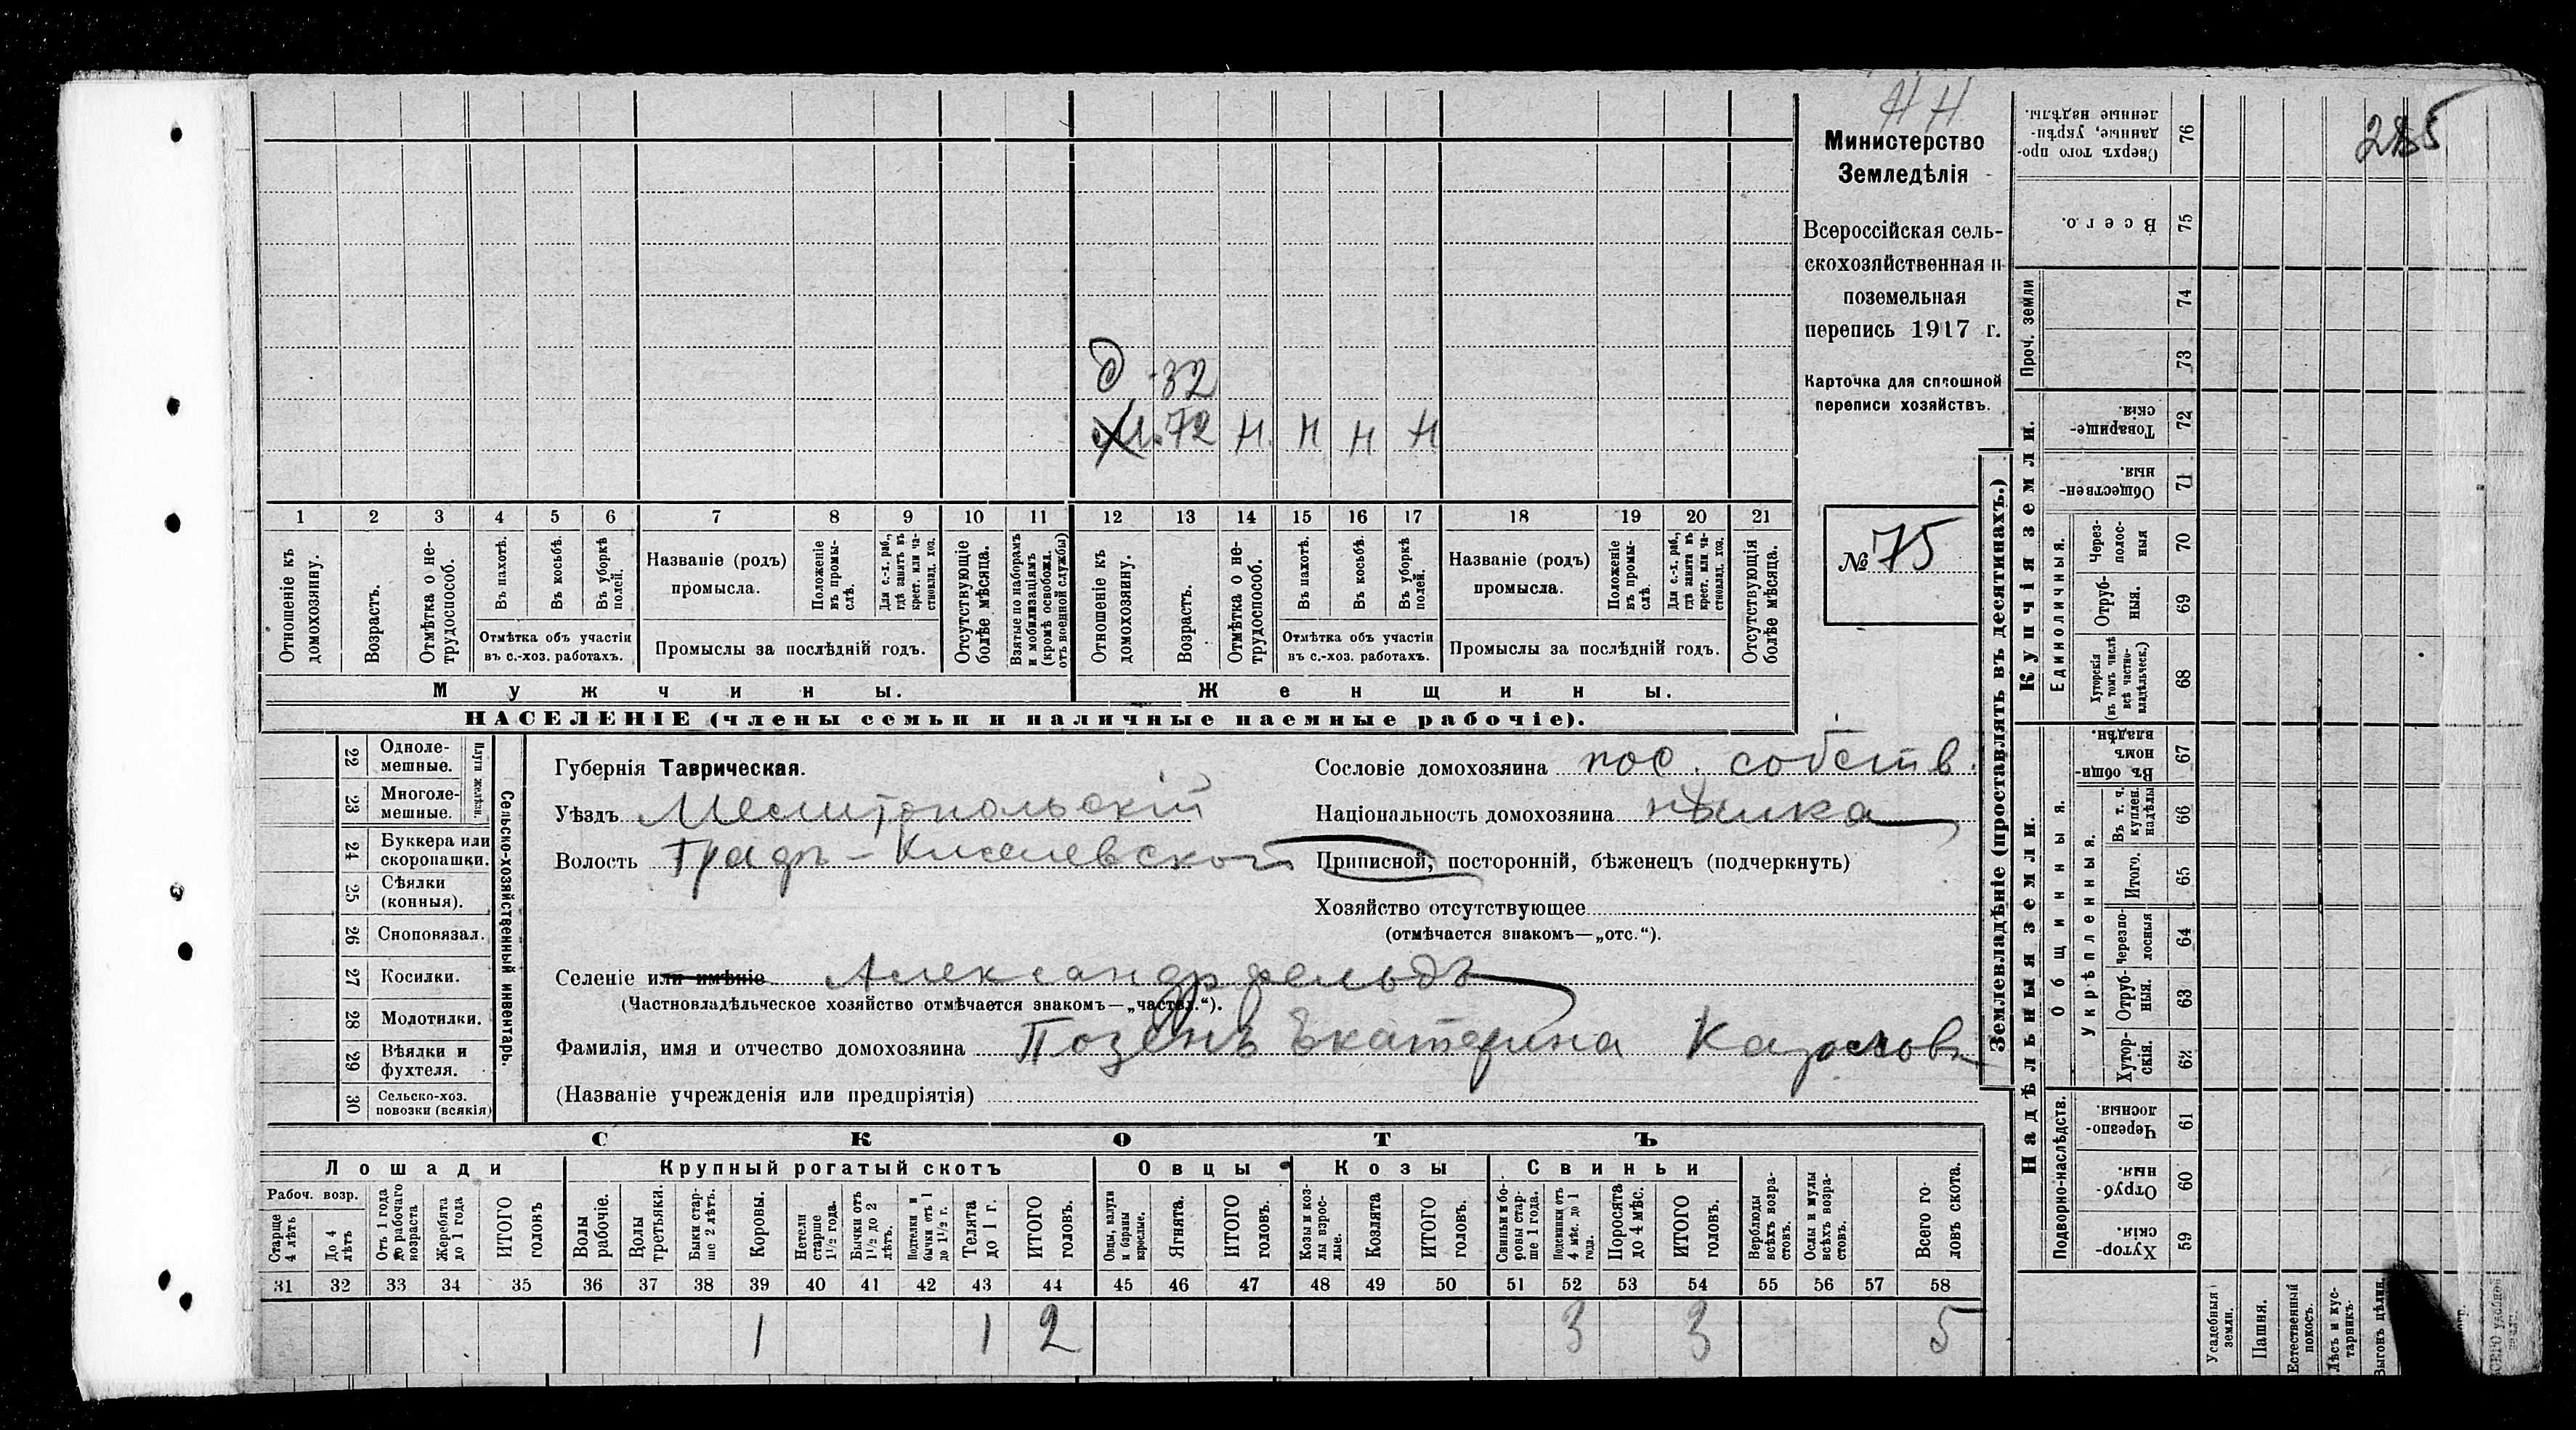 НН
Министерство
Земледѣлія
Всероссійская сель-
скохозяйственная и
поземельная
перепись 1917 г.
Карточка для сплошной
переписи хозяйствъ.
№ 75
285
д 32
М. 72 Н Н Н Н
1 2 3 4 5 6 7 8 9 10 11 12 13 14 15 16 17 18 19 20 21
Отношеніе къ домохозяину.
Возрастъ.
Отмѣтка о не-
трудоспособ.
Въ пахотѣ.
Въ косьбѣ.
Въ уборкѣ полей.
Отмѣтка объ участіи
въ с.-хоз. работахъ.
Названіе (родъ)
промысла.
Положеніе въ промы-
слѣ.
Для с.-х. раб., гдѣ занятъ въ крест. или ча-
стновлад. хоз.
Промыслы за послѣдній годъ.
Отсутствующіе болѣе мѣсяца.
Взятые по наборамъ и мобилизаціямъ (кромѣ освобожд. отъ военной службы)
Отношеніе къ домохозяину.
Возрастъ.
Отмѣтка о не-
трудоспособ.
Въ пахотѣ.
Въ косьбѣ.
Въ уборкѣ полей.
Отмѣтка объ участіи
въ с.-хоз. работахъ.
Названіе (родъ)
промысла.
Положеніе въ промы-
слѣ.
Для с.-х. раб., гдѣ занята въ крест. или ча-
стновлад. хоз.
Промыслы за послѣдній годъ.
Отсутствующія болѣе мѣсяца.
Мужчины.
Женщины.
НАСЕЛЕНІЕ (члены семьи и наличные наемные рабочіе).
22 Одноле-
мешные.
23 Многоле-
мешные.
Плуги желѣзн.
24 Буккера или
скоропашки.
25 Сѣялки
(конныя).
26 Сноповязал.
27 Косилки.
28 Молотилки.
29 Вѣялки и
фухтеля.
30 Сельско-хоз.
повозки (всякія)
Сельско-хозяйственный инвентарь.
Губернія Таврическая.
Уѣздъ Мелитопольскій
Волость
Сословіе домохозяина пос. собств.
Національность домохозяина нѣмка
Приписной, посторонній, бѣженецъ (подчеркнуть)
Хозяйство отсутствующее
(отмѣчается знакомъ—„отс.“).
Селеніе или имѣніе Александрфельдъ
(Частновладѣльческое хозяйство отмѣчается знакомъ—„частвл.“).
Фамилія, имя и отчество домохозяина Позенъ Екатерина
(Названіе учрежденія или предпріятія)
СКОТЪ
Лошади Крупный рогатый скотъ Овцы Козы Свиньи
Рабоч. возр.
Старше 4 лѣтъ
До 4 лѣтъ
Отъ 1 года до рабочаго возраста
Жеребята до 1 года
ИТОГО головъ
Волы рабочіе.
Волы третьяки.
Быки стар-
ше 2 лѣтъ.
Коровы.
Нетели старше 1½ года.
Бычки отъ 1½ до 2 лѣтъ.
Подтелки и бычки отъ 1 до 1½ г.
Телята до 1 г.
ИТОГО головъ.
Овцы, валухи и бараны взрослые.
Ягнята.
ИТОГО головъ.
Козы и коз-
лы взрос-
лые.
Козлята
ИТОГО головъ.
Свиньи и бо-
ровы стар-
ше 1 года.
Подсвинки отъ 4 мѣс. до 1 года.
Поросята до 4 мѣс.
ИТОГО головъ.
Верблюды всѣхъ возра-
стовъ.
Ослы и мулы всѣхъ возра-
стовъ.
Всего го-
ловъ скота.
31 32 33 34 35 36 37 38 39 40 41 42 43 44 45 46 47 48 49 50 51 52 53 54 55 56 57 58
1 1 2 3 3 5
Землевладѣніе (проставлять въ десятинахъ.)
Надѣльныя земли.
Купчія земли.
Проч. земли
Подворно-наслѣдств.
Общинныя.
Укрѣпленныя.
Единоличныя.
Сверхъ того про-
данные, укрѣп-
ленные надѣлы. 76
Всего. 75
74
73
Товарище-
скія. 72
Обществен-
ныя. 71
Через-
полос-
ныя 70
Отруб-
ныя. 69
Хуторскія (въ томъ числѣ всѣ частно-
владѣльческ.) 68
Въ общин-
номъ владѣн. 67
Въ т. ч. куплен. надѣлы 66
Итого. 65
Черезпо-
лосныя 64
Отруб-
ныя. 63
Хутор-
скія. 62
Черезпо-
лосныя. 61
Отруб-
ныя. 60
Хутор-
скія. 59
Усадебныя земли.
Пашня.
Естественный покосъ.
Лѣсъ и кус-
тарникъ.
Выгонъ цѣлин.